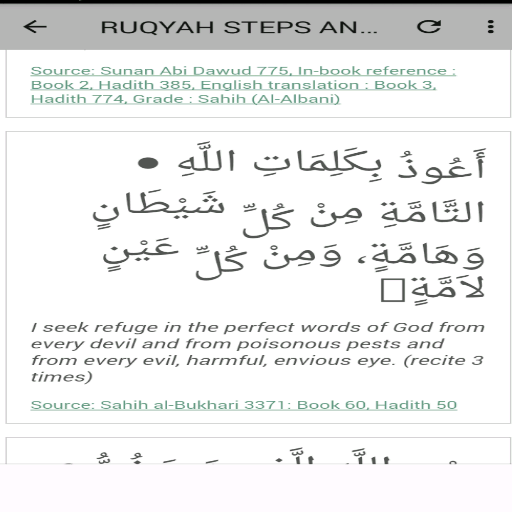 RUQYAH STEPS AN...
Source: Sunan Abi Dawud 775, In-book reference :
Book 2, Hadith 385, English translation : Book 3,
Hadith 774, Grade : Sahih (Al-Albani)
أَعُوذُ بِكَلِمَاتِ اللَّهِ ●
التَّامَّةِ مِنْ كُلِّ شَيْطَانٍ
وَهَامَّةٍ، وَمِنْ كُلِّ عَيْنٍ
لاَمَّةٍ
I seek refuge in the perfect words of God from
every devil and from poisonous pests and
from every evil, harmful, envious eye. (recite 3
times)
Source: Sahih al-Bukhari 3371: Book 60, Hadith 50